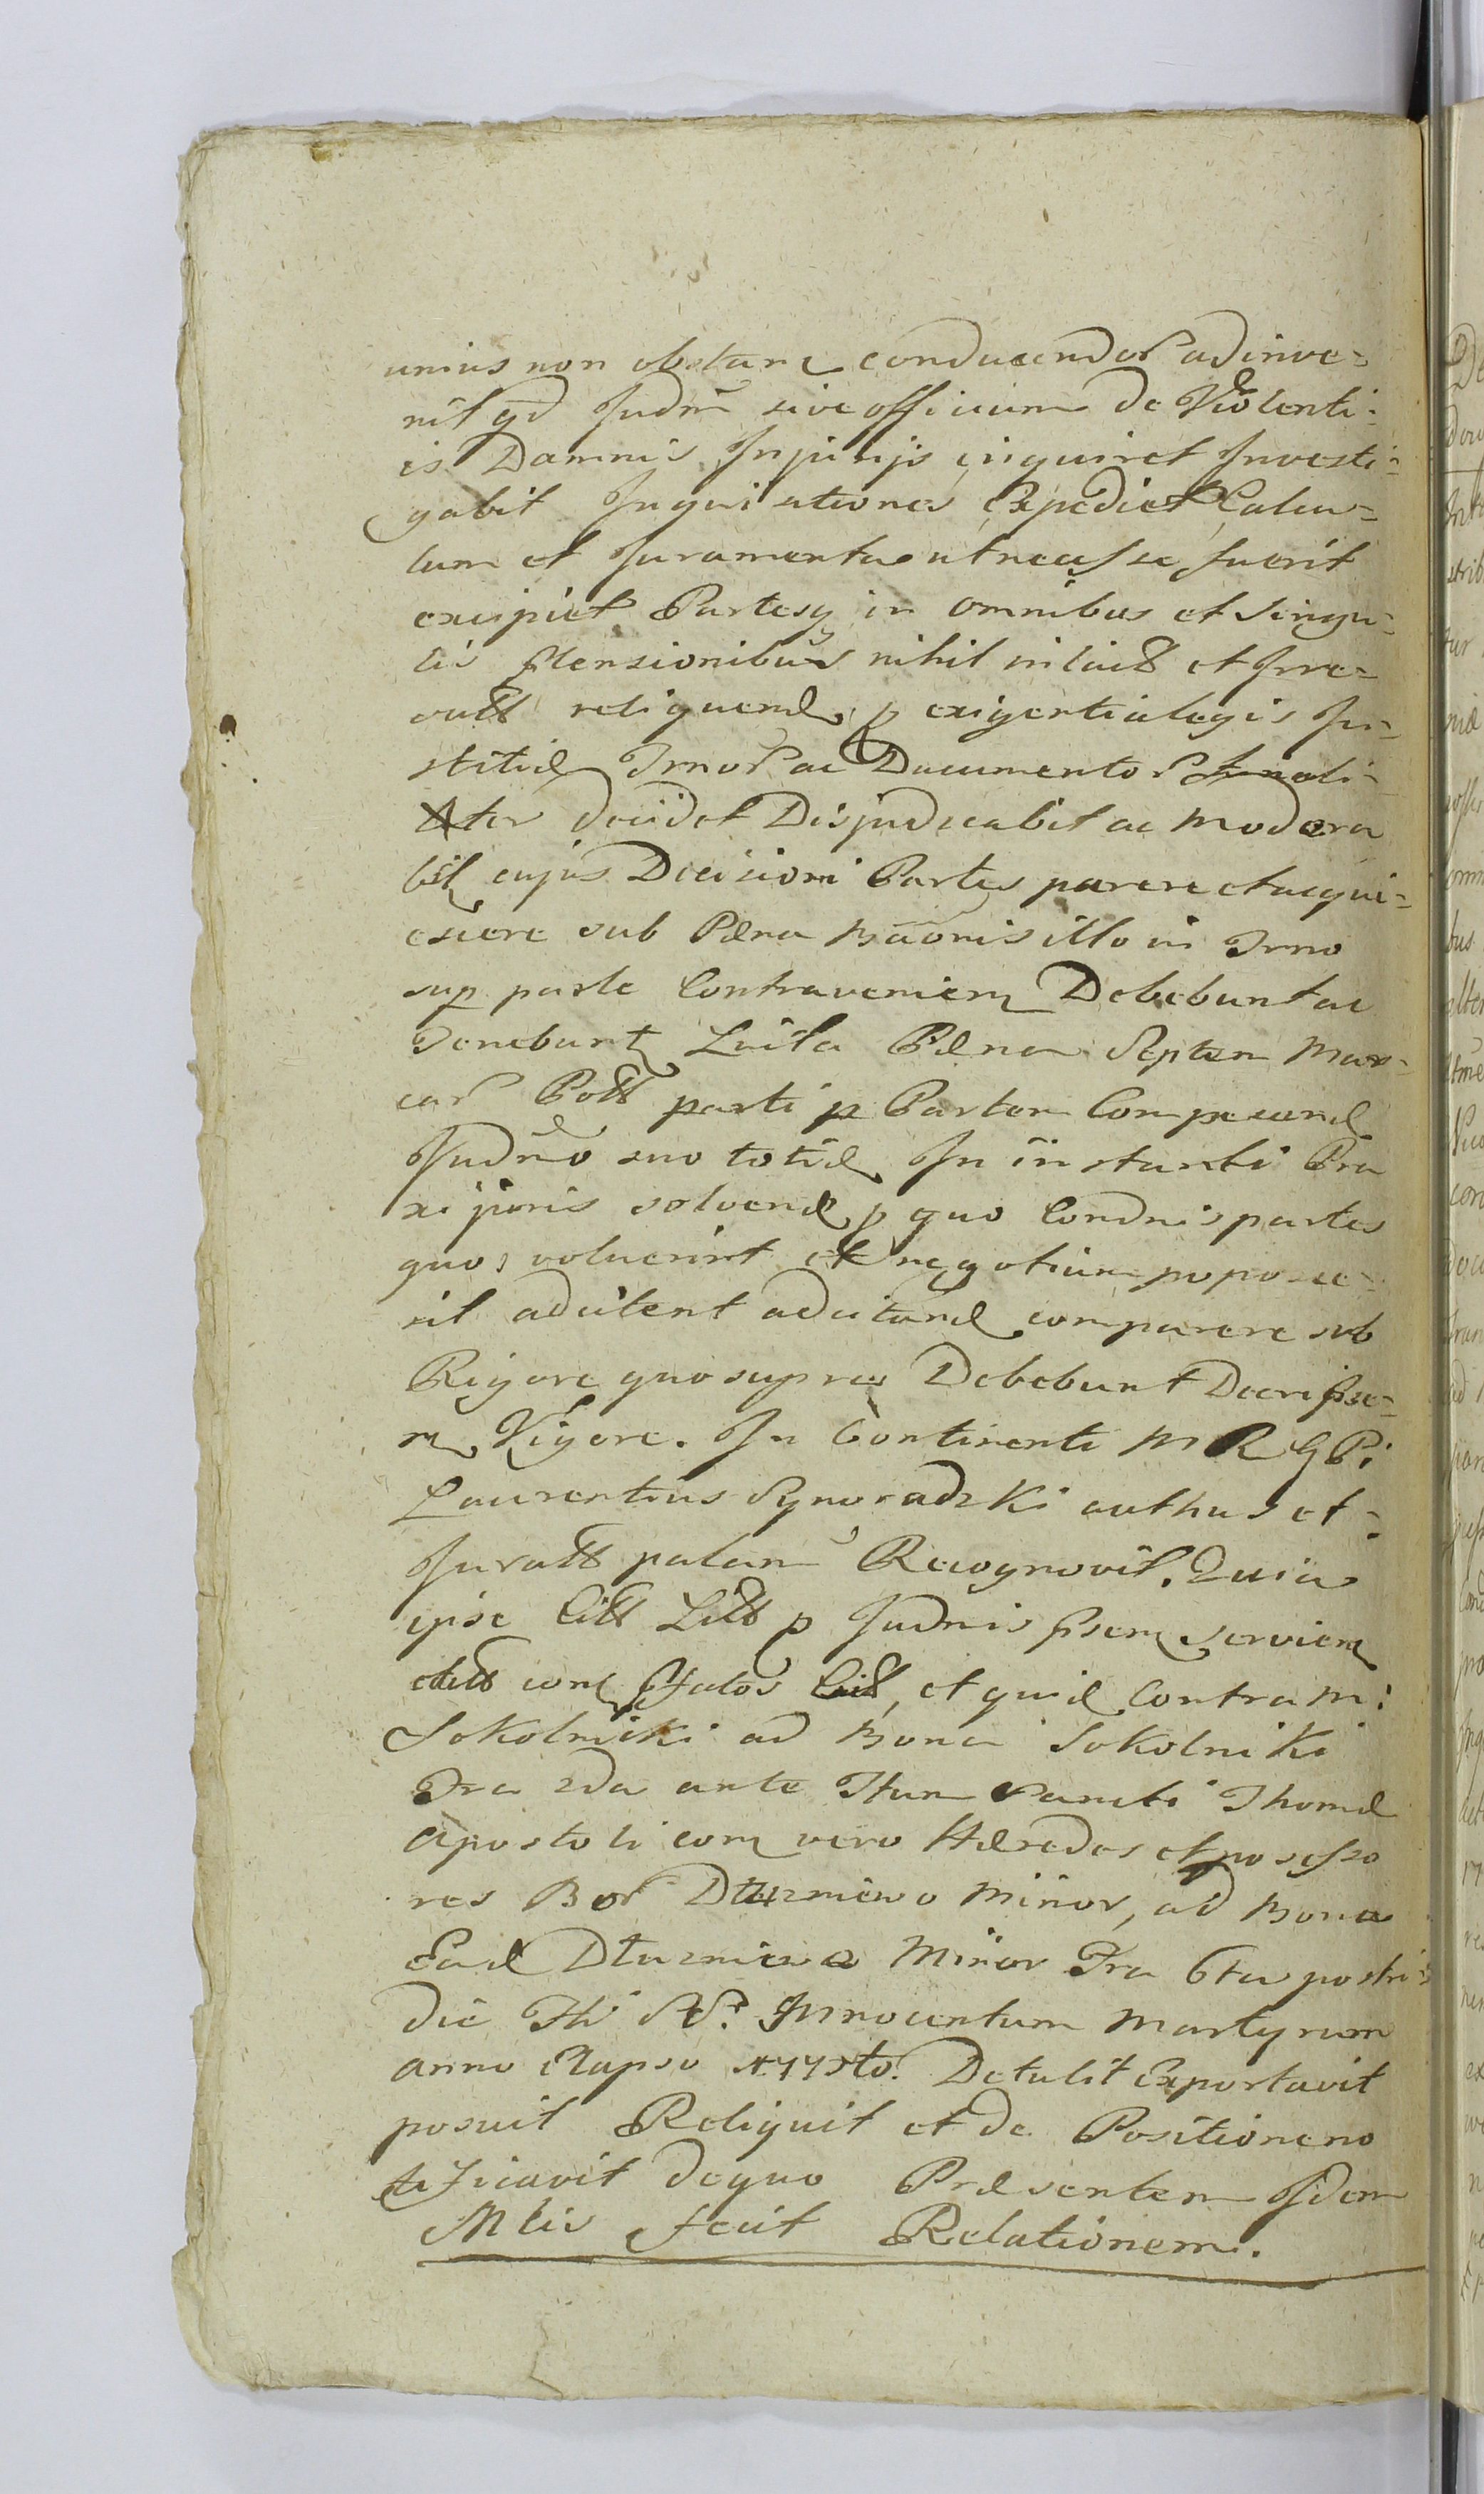 unius non obstan conducendor adinve=
nit qd Judm sive officium de Violenti=
is Damnis Injurijs inquiret Investi=
gabit Inquisitiones Expediet Calcu=
lum et Juramenta ut necesse fuerit
excipiet Partesq in omnibus et Singu=
lis ptensionibus nihil in et Irre=
relinquend p exigentia legis Ju=
stitiæ Trnor ac Documentor finali=
ter decidet Disjudicabit ac modera
bit cujus Decisioni Partes parere et acqui=
escere sub Pæna banonis illo in Trno
sup parte Contravenien Debebunt ac
Tenebunt Luita Pæna Septem mar=
car Poll parti p Partem Comparend
Judrio suo totid In instanti Pra
xi juris solvend p quo Condnis partes
quos voluerint et negotium poposce=
rit adcitent adcitand comparere sub
Rigore quo supra Debebunt Decri psen=
m Vigore. In Continenti M R G P:
Laurentius Synoradzki authus et=
Juratt palam Recognovit. Quia
ipse Citt Litt p Judnis psen servien
con ptatos et quid Contra M:
Sokolnicki ad Bona Sokolniki
Fra 2da ante Ftum Sancti Thomæ
Apostoli con vero Hæredes et posesso
res Bor Dłuzniewo Minor, ad Bona
Ead Dłuzniewo Minor Fra 6ta postri=
die Fti SS. Innocentum Martyrum
anno Elapso Detulit Exportavit
posuit Reliquit et de Positione no
tificavit de quo Præsentem Idem
Mlis fecit Relationem.